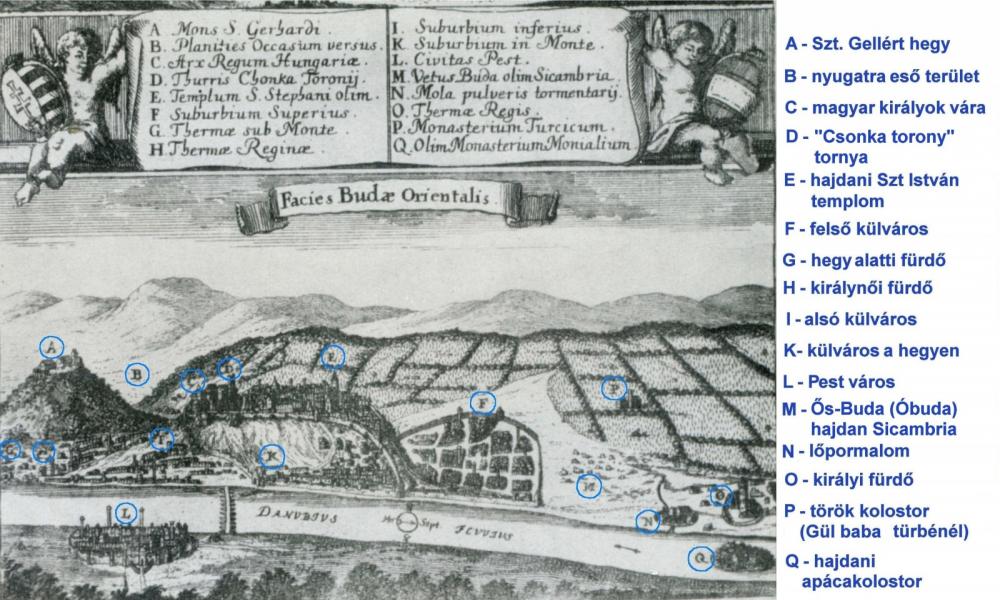 A Mons S. Gerhardi.
B. Planities Occasum versus.
C. Arx Regum Hungariæ.
D. Thurris Chonka Toronij.
E. Templum S. Stephani olim.
F Suburbium Superius.
G. Thermæ sub Monte.
H. Thermæ Reginæ.
I. Suburbium inferius.
K. Suburbium in Monte.
L. Civitas Pest.
M. Vetus Buda olim Sicambria.
N. Mola pulveris tormentarij.
O. Thermæ Regis.
P. Monasterium Turcicum.
Q. Olim Monasterium Monialium
Facies Budæ Orientalis.
A
B
C
D
E
F
P
I
K
G
M
N
O
L
DANUBIUS
Mer Sept
FLUVIUS
Q
A - Szt. Gellért hegy
B - nyugatra eső terület
C - magyar királyok vára
D - "Csonka torony"
tornya
E - hajdani Szt István
templom
F - felső külváros
G - hegy alatti fürdő
H - királynői fürdő
I - alsó külváros
K- külváros a hegyen
L - Pest város
M - Ős-Buda (Óbuda)
hajdan Sicambria
N - lőpormalom
O - királyi fürdő
P - török kolostor
(Gül baba türbénél)
Q - hajdani
apácakolostor